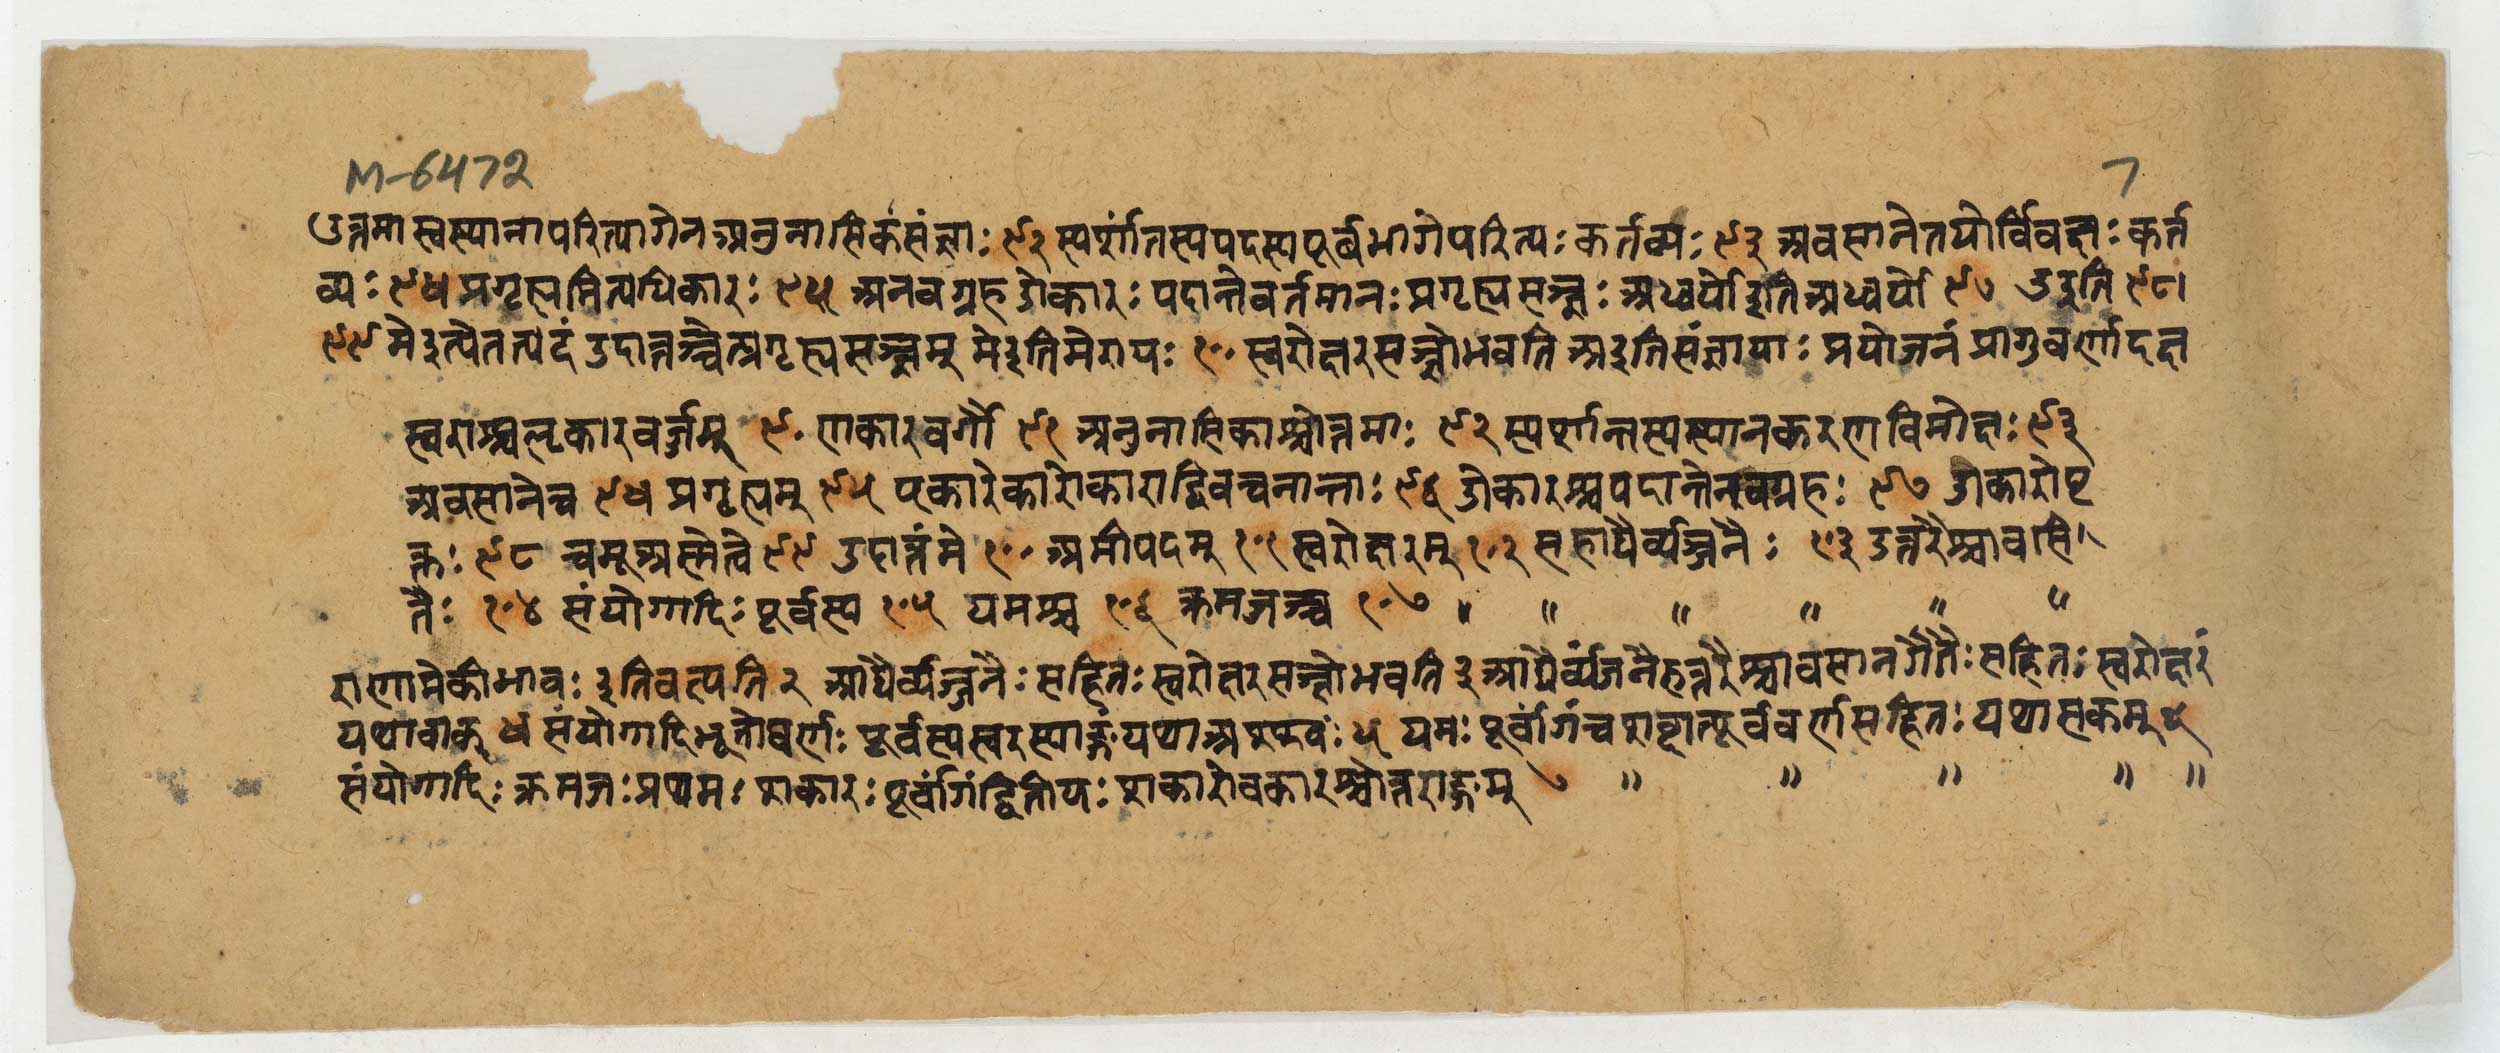 M-6472
7
उत्तमा स्वस्थानापरित्यागेनअनुनासिकसंज्ञाः ९२ स्पर्शांतस्यपदस्यपूर्वभागेपरित्यः कर्तव्यः ९३ अवसानेतयोर्विवक्षः कर्त
व्यः ९४ प्रगृह्यमित्यधिकारः ९५ अनवग्रह ओकारः पदान्तेवर्तमानः प्रगृह्यसञ्ज्ञः अध्वर्योइतिअध्वर्यो ९७ उइति ९८।
९९ मेइत्येतत्पदं उदात्तञ्चेत्प्रगृह्यसञ्ज्ञम् मेइतिमेरायः १०० स्वरोक्षरसञ्ज्ञोभवति अइतिसंज्ञायाः प्रयोजनं प्रागुवर्णोदक्ष
स्वराश्चलृकारवर्जम् ९० णकारवर्गौ ९१ अनुनासिकाश्चोत्तमाः ९२ स्पर्शान्तस्यस्थानकरणविमोक्षः ९३
अवसानेच ९४ प्रगृह्यम् ९५ एकारेकारोकाराद्विवचनान्ताः ९६ ओकारश्चपदान्तेनवग्रहः ९७ ओकारोपृ
क्तः ९८ चमूअस्मेत्वे ९९ उदात्तंमे १०० अमीपदम् १०१ स्वरोक्षरम् १०२ सहाद्यैर्व्यञ्जनैः १०३ उत्तरैश्चावसि
तैः १०४ संयोगादिः पूर्वस्य १०५ यमश्च १०६ क्रमजञ्च १०७ ॥ ॥ ॥ ॥ ॥ ॥
राणामेकीभावः इतिवत्पति २ आद्यैर्व्यञ्जनैः सहितः स्वरोक्षरसञ्ज्ञोभवति ३ आद्यैर्व्यंजनैरुत्तरैश्चावसानगैतैः सहितः स्वरोक्षरं
यथावाक् ४ संयोगादिभूतोवर्णः पूर्वस्यस्वरस्याङ्गंयथाअश्श्वः ५ यमः पूर्वांगंचशब्दात्पूर्ववर्णसहितः यथासकम् ६
संयोगादिः क्रमजः प्रथमः शकारः पूर्वांगंद्वितीयः शकारोवकारश्चोत्तराङ्गम् ७ ॥ ॥ ॥ ॥ ॥